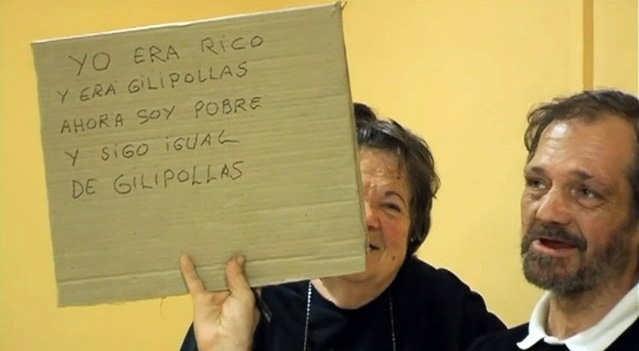 YO ERA RICO
Y ERA GILIPOLLAS
AHORA SOY POBRE
Y SIGO IGUAL
DE GILIPOLLAS